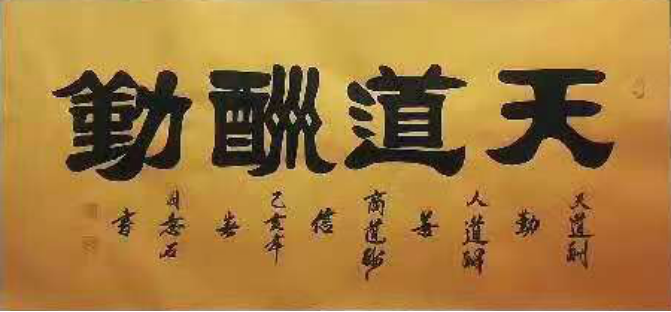 天道酬勤
天道酬
勤
人道酬
善
商道酬
信
乙亥年
春
周志石
書